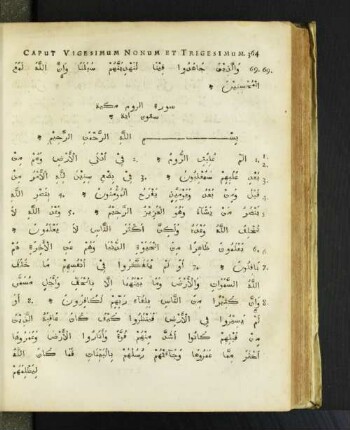 CAPUT VIGESIMUM NONUM ET TRIGESIMUM. 364
وَٱلَّذِينَ جَاهَدُوا فِينَا لَنَهْدِيَنَّهُمْ سُبُلَنَا وَإِنَّ اللَّهَ لَمَعَ 69. 69.
الْمُحْسِنِينَ *
سورة الروم مكية
ستون آية *
بِسْمِ اللَّهِ الرَّحْمَنِ الرَّحِيمِ *
الم غُلِبَتِ الرُّومُ * 2. فِي أَدْنَى الْأَرْضِ وَهُمْ مِنْ 1. 2.
بَعْدِ غَلَبِهِمْ سَيَغْلِبُونَ * 3. فِي بِضْعِ سِنِينَ لِلَّهِ الْأَمْرُ مِنْ 3.
قَبْلُ وَمِنْ بَعْدُ وَيَوْمَئِذٍ يَفْرَحُ الْمُؤْمِنُونَ * 4. بِنَصْرِ اللَّهِ 4.
يَنْصُرُ مَنْ يَشَاءُ وَهُوَ الْعَزِيزُ الرَّحِيمُ * 5. وَعْدَ اللَّهِ لَا 5.
يُخْلِفُ اللَّهُ وَعْدَهُ وَلَكِنَّ أَكْثَرَ النَّاسِ لَا يَعْلَمُونَ *
6. يَعْلَمُونَ ظَاهِرًا مِنَ الْحَيَوةِ الدُّنْيَا وَهُمْ عَنِ الْآخِرَةِ هُمْ 6.
غَافِلُونَ * 7. أَوَ لَمْ يَتَفَكَّرُوا فِي أَنْفُسِهِمْ مَا خَلَقَ 7.
اللَّهُ السَّمَوَاتِ وَالْأَرْضَ وَمَا بَيْنَهُمَا إِلَّا بِالْحَقِّ وَأَجَلٍ مُسَمًّى
وَإِنَّ كَثِيرًا مِنَ النَّاسِ بِلِقَاءِ رَبِّهِمْ لَكَافِرُونَ * 8. أَوَ 8.
لَمْ يَسِيرُوا فِي الْأَرْضِ فَيَنْظُرُوا كَيْفَ كَانَ عَاقِبَةُ الَّذِينَ
مِنْ قَبْلِهِمْ كَانُوا أَشَدَّ مِنْهُمْ قُوَّةً وَأَثَارُوا الْأَرْضَ وَعَمَرُوهَا
أَكْثَرَ مِمَّا عَمَرُوهَا وَجَاءَتْهُمْ رُسُلُهُمْ بِالْبَيِّنَاتِ فَمَا كَانَ اللَّهُ
لِيَظْلِمَهُمْ